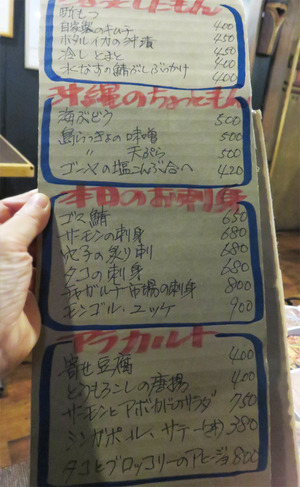 酢もつ 400
自家製のキムチ 400
ホタルイカの沖漬 450
冷しとまと 400
水なすの鯖ぶしぶっかけ 400
沖縄のちょっともん
海ぶどう 500
島らっきょの味噌 500
〃 天ぷら 500
ゴーヤの塩こんぶ合へ 420
本日のお刺身
ゴマ鯖 650
サーモンの刺身 680
穴子の炙り刺 680
タコの刺身 680
チャガルチ市場の刺身 800
モンゴル、ユッケ 900
アラカルト
寄せ豆腐 400
とうもろこしの唐揚 400
サーモンとアボカドのサラダ 750
シンガポール、サテー(本) 380
タコとブロッコリーのアヒージョ 800